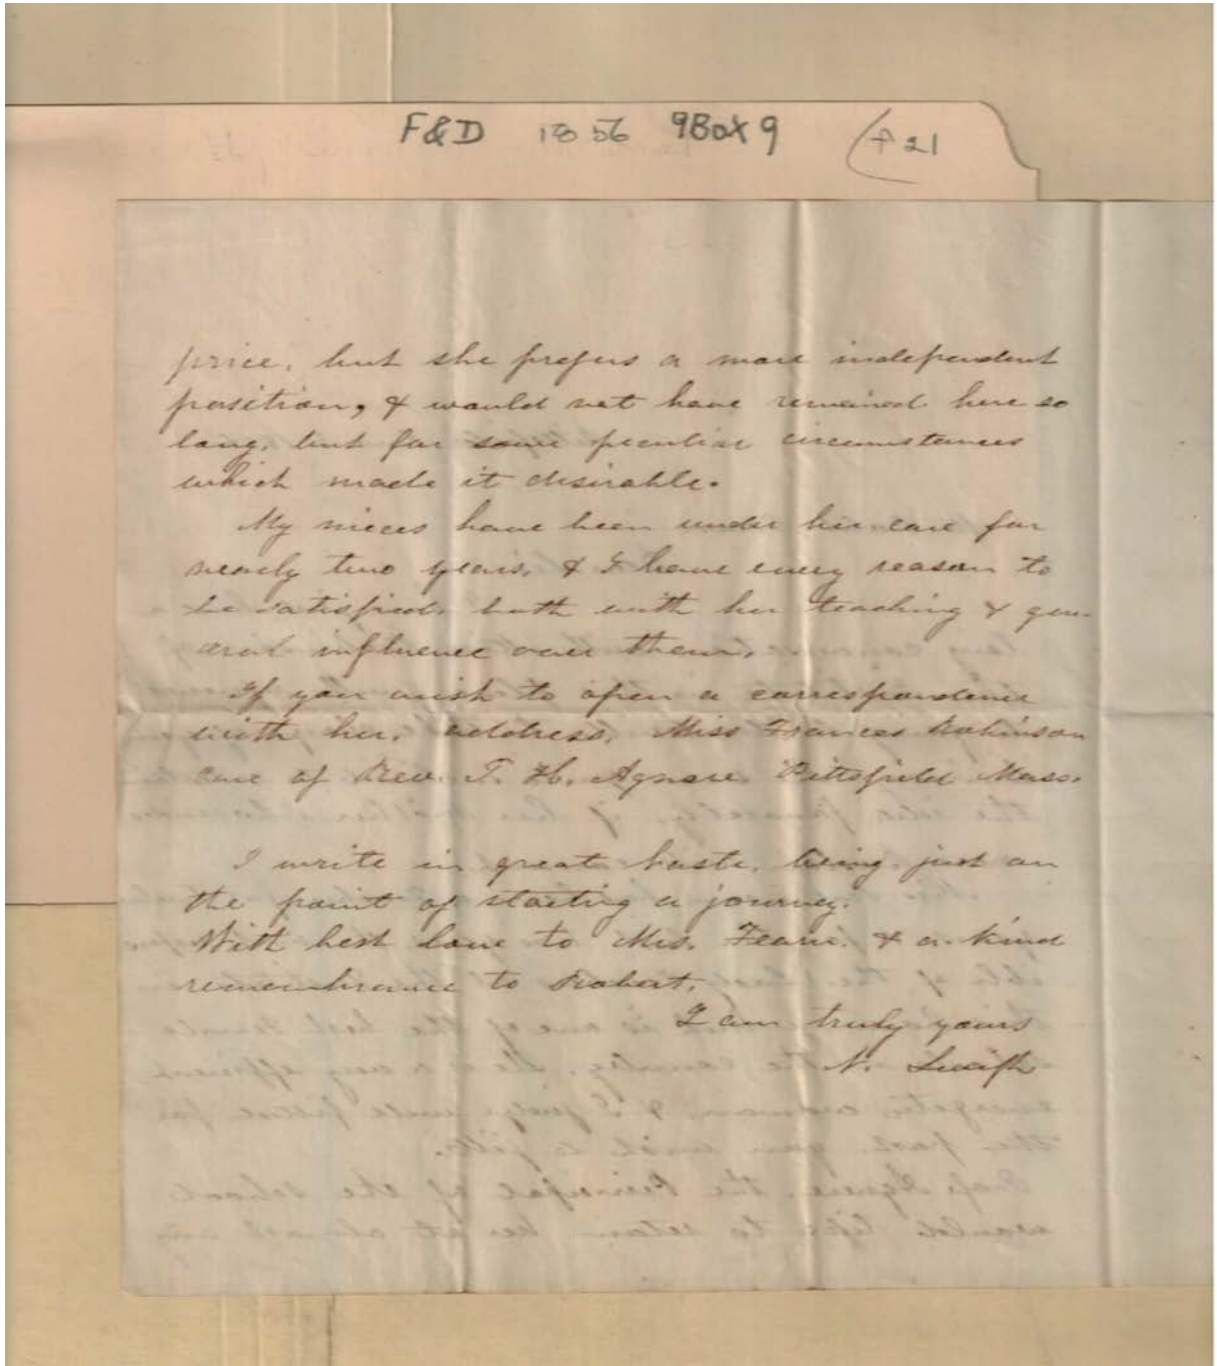 F&D 1856 9Box9 21
price, but she prefers a more independent
position, & would not have remained here so
long, but for some peculiar circumstances
which made it desirable.
My nieces have been under her care for
nearly two years, & I have every reason to
be satisfied both with her teaching & gen-
eral influence over them.
If you wish to open a correspondence
with her, address, Miss Frances Robinson
care of Rev. T. H. Pittsfield Mass.
I write in great haste, being just on
the point of starting a journey.
With best love to Mrs. Fearn, & a kind
remembrance to Robert.
I am truly yours
N.